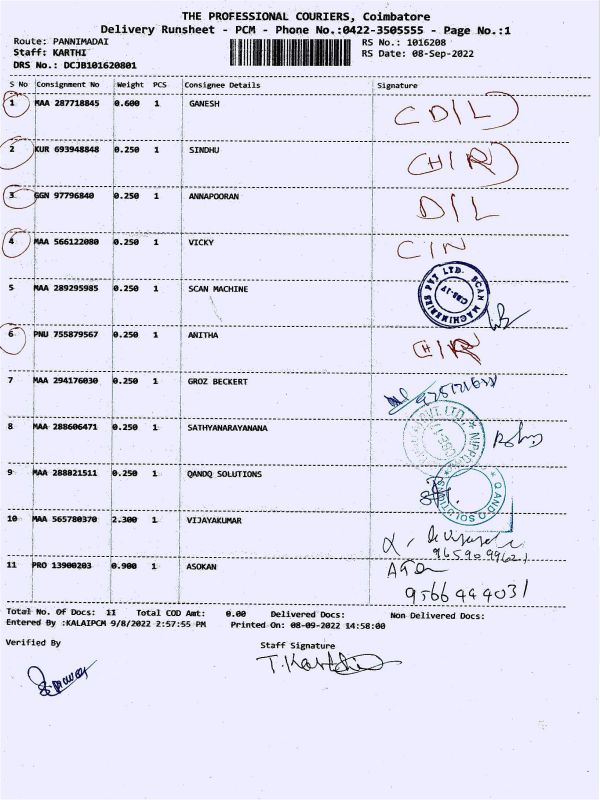 THE PROFESSIONAL COURIERS, Coimbatore
Delivery Runsheet - PCM - Phone No.:0422-3505555 - Page No.:1
Route: PANNIMADAI RS No.: 1016208
Staff: KARTHI RS Date: 08-Sep-2022
DRS No.: DCJB101620801
S No Consignment No Weight PCS Consignee Details Signature
1 MAA 287718845 0.600 1 GANESH CDIL
2 KUR 693948848 0.250 1 SINDHU CHIR
3 GGN 97796840 0.250 1 ANNAPOORAN DIL
4 MAA 566122080 0.250 1 VICKY CIN
5 MAA 289295985 0.250 1 SCAN MACHINE SCAN MACHINERIES PVT LTD. CBE-17
6 PNU 755879567 0.250 1 ANITHA CHIR
7 MAA 294176030 0.250 1 GROZ BECKERT
8 MAA 288606471 0.250 1 SATHYANARAYANANA
9 MAA 288021511 0.250 1 QANDQ SOLUTIONS Q AND Q SOLUTIONS
10 MAA 565780370 2.300 1 VIJAYAKUMAR
9659099621
11 PRO 13900203 0.900 1 ASOKAN
9566444031
Total No. Of Docs: 11 Total COD Amt: 0.00 Delivered Docs: Non Delivered Docs:
Entered By :KALAIPCM 9/8/2022 2:57:55 PM Printed On: 08-09-2022 14:58:00
Verified By Staff Signature
T. Karthi